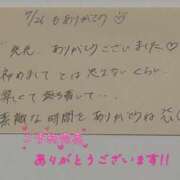 7/26 もありがとう
"先日、ありがとうございました♡
初めまして とは 思えない くらい
楽しくて 落ち着いて…
素敵な時間を ありがとうね
ありがとうございます!!